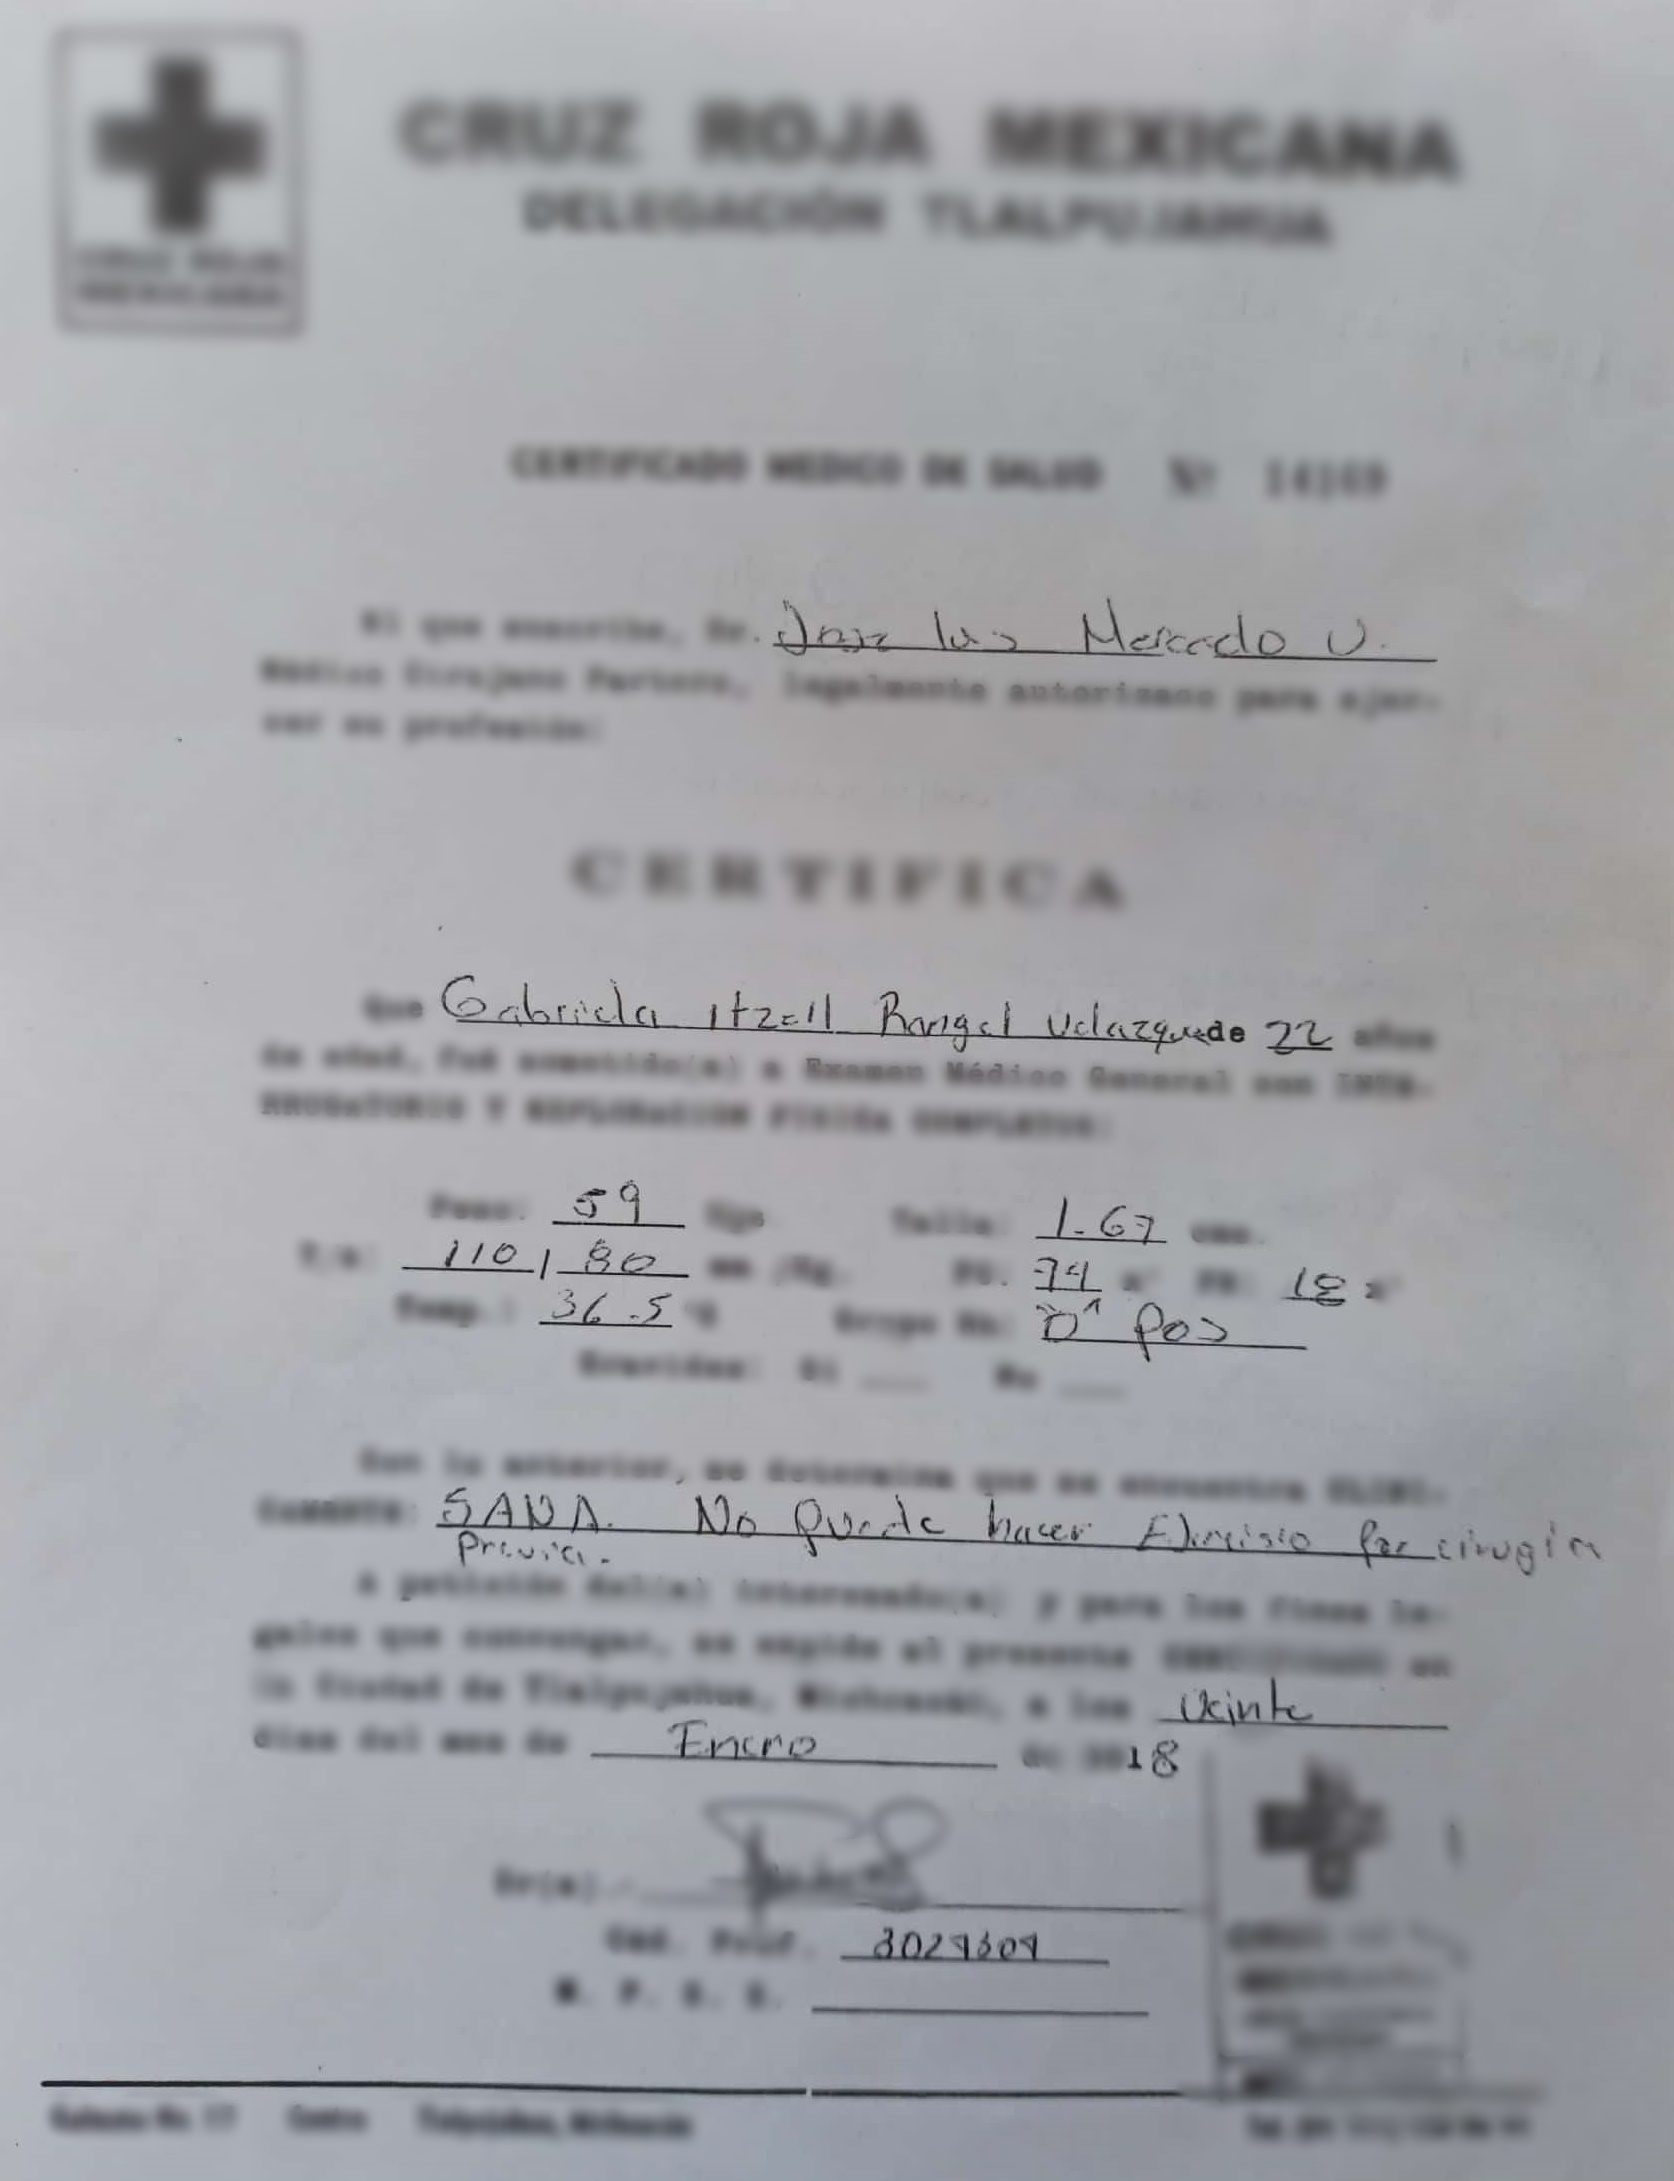 CRUZ ROJA MEXICANA
DELEGACIÓN TLALPUJAHUA
CRUZ ROJA
MEXICANA
CERTIFICADO MEDICO DE SALUD Nº 14169
El que suscribe, Dr. Jose luis Mercado V.
Médico Cirujano Partero, legalmente autorizado para ejer-
cer su profesión:
CERTIFICA
Que Gabriela Itzell Rangel Velazquez de 22 años
de edad, fué sometido(a) a Examen Médico General con INTE-
RROGATORIO Y EXPLORACION FISICA COMPLETOS:
Peso: 59 Kgs Talla: 1.67 cms.
T/A: 110/80 mm /Hg. FC: 74 x' FR: 18 x'
Temp.: 36.5 °C Grupo Rh: "O" pos
Gravidez: Si No
Con lo anterior, se determina que se encuentra CLINI-
CAMENTE: SANA. No puede hacer por cirugía
previa.
A petición del(a) interesado(a) y para los fines le-
gales que convengan, se expide el presente CERTIFICADO en
la Ciudad de Tlalpujahua, Michoacán, a los Veinte
días del mes de Enero de 2018
Dr(a).
Ced. Prof.
M. P. S. S.
No. 17 Centro Tlalpujahua, Michoacán